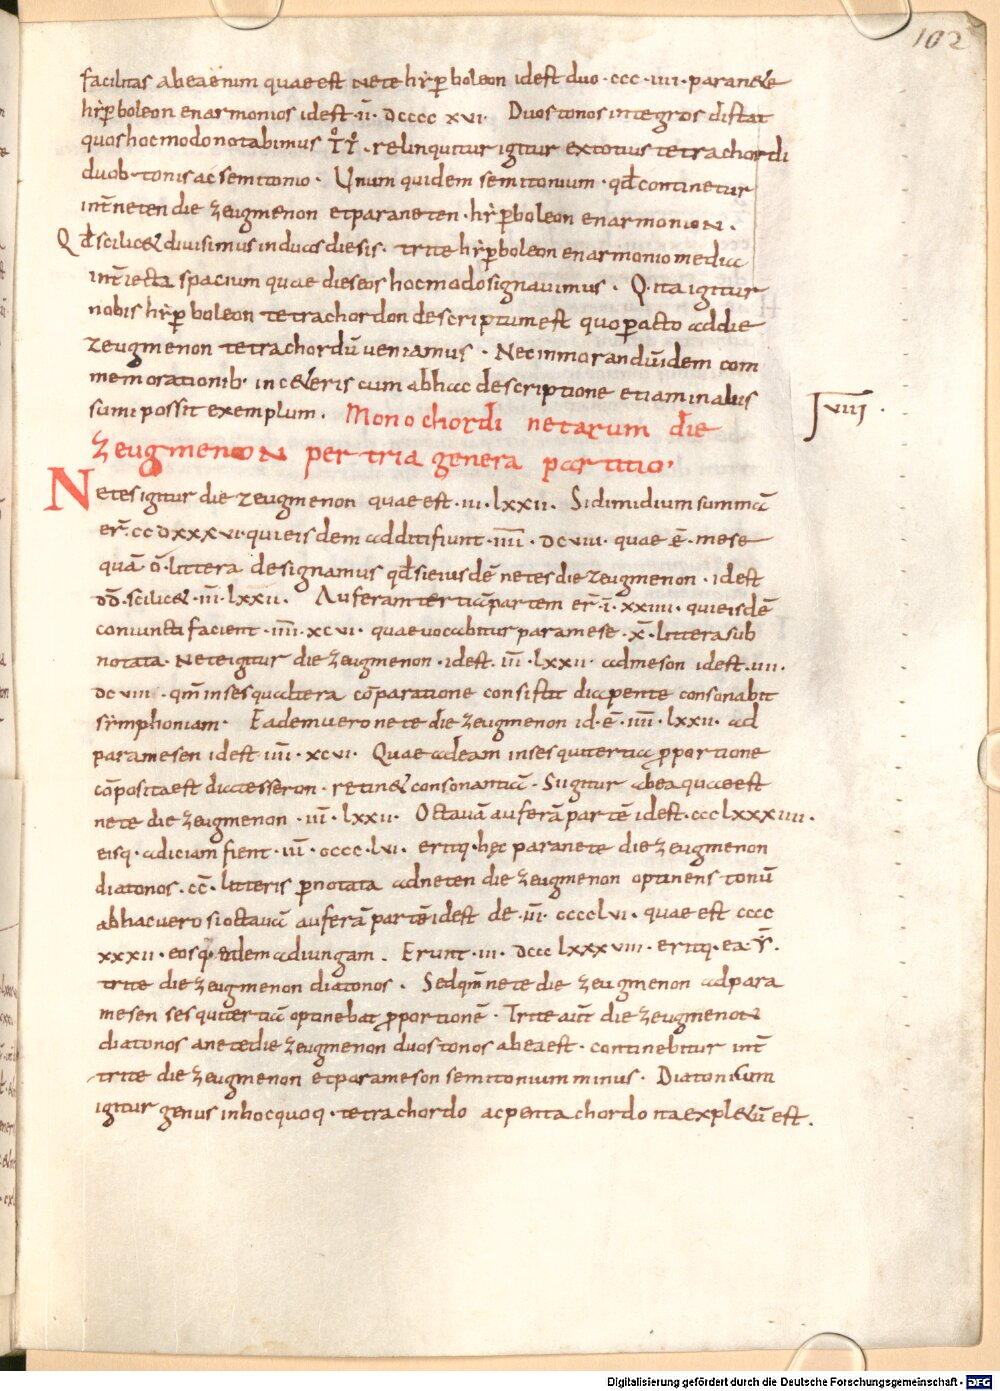 102
facilitas abeaenim quae est Nete hẏꝑboleon idest duo · ccc · iiii · paranete
hẏꝑboleon enarmonios idest · ii̅ · dcccc xvi · Duos tonos integros distat
quos hoc modo notabimus · relinquitur igitur ex totius tetrachordi
duob· tonis ac semitonio · Unum quidem semitonium · qđ continetur
int̄ neten die zeugmenon et paraneten · hẏꝑboleon enarmonion ·
Qđ scilicet divisimus in duas diesis · trite hẏꝑboleon enarmonio media
int̄iecta spacium quae dieseos hoc modo signavimus · Q· ita igitur
nobis hẏꝑboleon tetrachordon descriptum est quo ꝑacto ad die
zeugmenon tetrachordū veniamus · Nec immorandū idem com
memorationib· in ceteris cum ab hac descriptione etiam in aliis
sumi possit exemplum · Monochordi netarum die
viiii ·
zeugmenon per tria genera partitio ·
Netes igitur die zeugmenon quae est · iii · lxxii · Si dimidium summā
er̄ · cc dxxxvi · qui eisdem additi fiunt · iiii̅ · dcviii · quae ē · mese
quā · ō · littera designamus qđ si eiusdē netes die zeugmenon · idest
dd̄ · scilicet · iii̅ · lxxii · Auferam tertiā partem er̄ · i̅ · xxiiii · qui eisdē
coniuncti facient · iiii̅ · xcvi · quae vocabitur paramese · x̄ · littera sub
notata · Nete igitur die zeugmenon · idest · iii̅ · lxxii · ad meson idest · iiii ·
dcviii · qm̄ in sesqualtera cōparatione consistit diapente consonabit
sẏmphoniam · Eadem vero nete die zeugmenon id · ē · iii̅ · lxxii · ad
paramesen idest · iiii̅ · xcvi · Quae ad eam in sesquitertia ꝓportione
cōposita est diatesseron · retinet consonantiā · Si igitur ab ea quae est
nete die zeugmenon · iii̅ · lxxii · Octavā auferā partē idest · ccclxxxiiii ·
eisq· adiciam fient · iii̅ · cccc · lvi · eritq· hęc paranete die zeugmenon
diatonos · cc̄ · litteris ꝑnotata ad neten die zeugmenon optinens tonū
ab hac vero si octavā auferā partē idest de · iii̅ · cccclvi · quae est cccc
xxxii · eosq· eidem adiungam · Erunt · iii · dccclxxxviii · eritq· ea · Ȳ ·
trite die zeugmenon diatonos · Sed qm̄ nete die zeugmenon ad para
mesen sesquitertiā optinebat ꝓportionē · Trite aut̄ die zeugmenon
diatonos a nete die zeugmenon duos tonos abea est · continebitur int̄
trite die zeugmenon et parameson semitonium minus · Diatonicum
igitur genus in hoc quoq· tetrachordo ac pentachordo ita expletū est ·
Digitalisierung gefördert durch die Deutsche Forschungsgemeinschaft - DFG